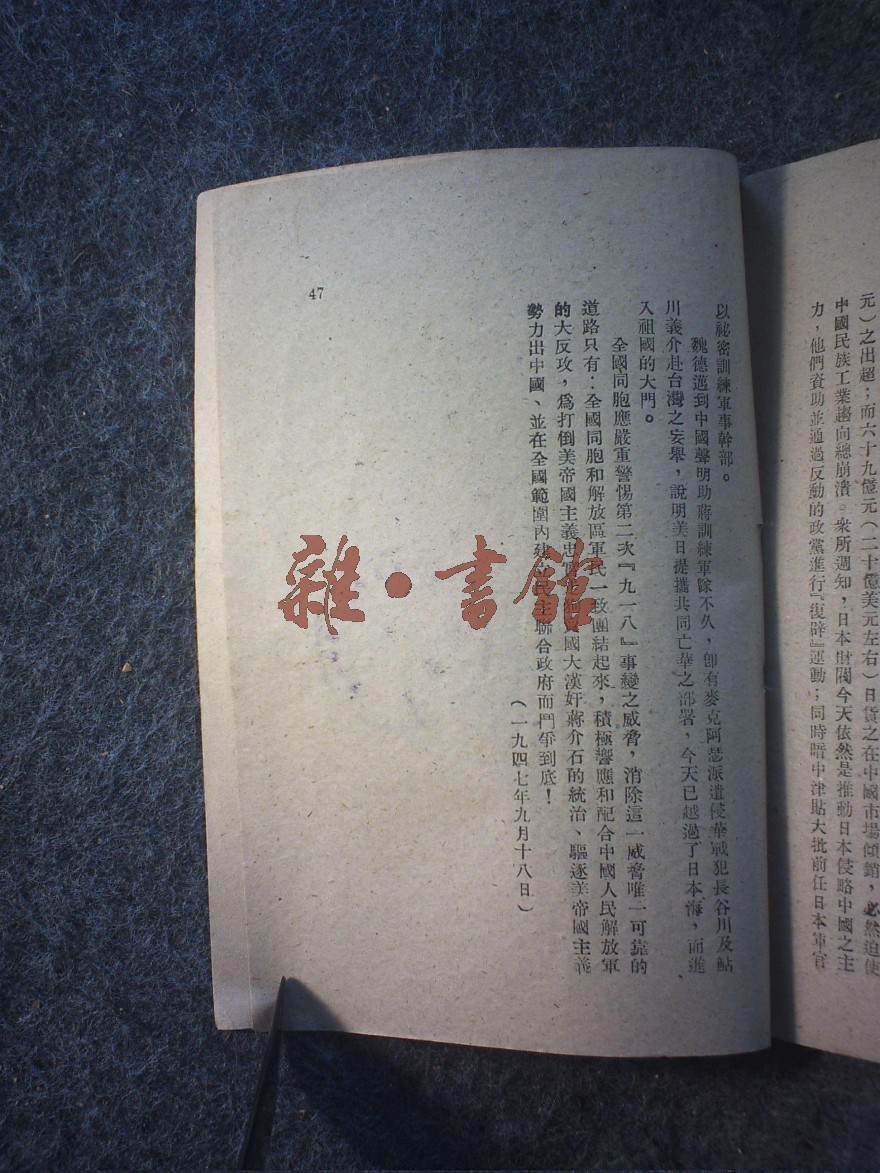 元）之出超；而六十九億元（二十億美元左右）日貨之在中國市場傾銷，必然迫使
中國民族工業趨向總崩潰。衆所週知，日本財閥今天依然是推動日本侵略中國之主
力，他們資助並通過反動的政黨進行『復辟』運動；同時暗中津貼大批前任日本軍官
以祕密訓練軍事幹部。
魏德邁到中國聲明助蔣訓練軍隊不久，卽有麥克阿瑟派遣侵華戰犯長谷川及鮎
川義介赴台灣之妄舉，說明美日提攜共同亡華之部署，今天已越過了日本海，而進
入祖國的大門。
全國同胞應嚴重警惕第二次『九一八』事變之威脅，消除這一威脅唯一可靠的
道路只有：全國同胞和解放區軍民一致團結起來，積極響應和配合中國人民解放軍
的大反攻，爲打倒美帝國主義忠國大漢奸蔣介石的統治、驅逐美帝國主義
勢力出中國、並在全國範圍內建立民主聯合政府而鬥爭到底！
（一九四七年九月十八日）
47
雜·書館